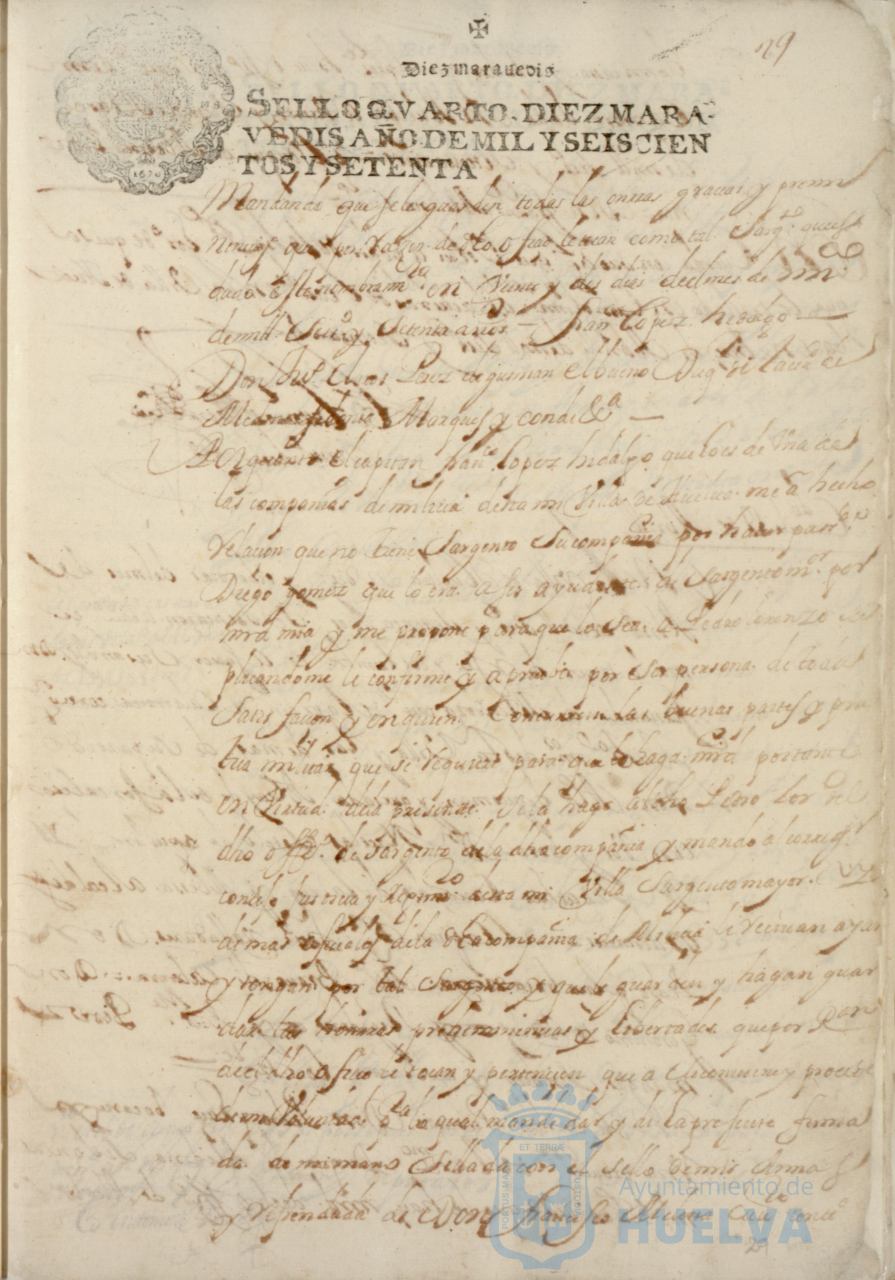 29
Diez maravedis
SELLO QVARTO, DIEZ MARA-
VEDIS AÑO DE MIL Y SEISCIEN
TOS Y SETENTA
1670
Mandando que se le guarden todas las onrras gracias y premi
nencias que por razon de dho ofiçio le tocan como tal Sargto que es
dado este nombramto en Veinte y dos dias del mes de
de mill Seisos y Setenta años — Franco Lopez hidalgo —
Don Juº Claros Perez de guzman el bueno Duq de la ciud de
Medina sidonia Marques y conde &a —
Por quanto el capitan Franco Lopez hidalgo que lo es de Vna de
las companias de miliçia desta mi Villa de Huelva me a hecho
relacion que no tiene Sargento Su compañia por haber pasado
Diego gomez que lo era a ser ayudante de Sargento mor por
mrd mia y me propone para que lo sea a Pedro lorenzo su
plicandome le confirme y aprueba por Ser persona de toda
Satisfacion y en quien Concurren las buenas partes y pra
tica militar que se requiere para que le haga mrd por tanto
en Virtud dela presente Se la hago al dho Pedro Lor del
dho offiº de Sargento dela dha compañia y mando al correxor
conçejo Justicia y Regimto desta mi Villa Sargento mayor
demas ofiçiales dela dha compañia de Miliçia le reciuan ayan
y tengan por tal Sargento y que le guarden y hagan guar
dar las honrras preheminencias y libertades que por Raçon
del dho ofiçio le tocan y pertenecen que
de mi Voluntad pa lo qual mande dar y di la presente firma
da de mi mano Sellada con el Sello de mis Armas
y refrendada de Don Francisco
ET TERRÆ
Ayuntamiento de
HUELVA
29